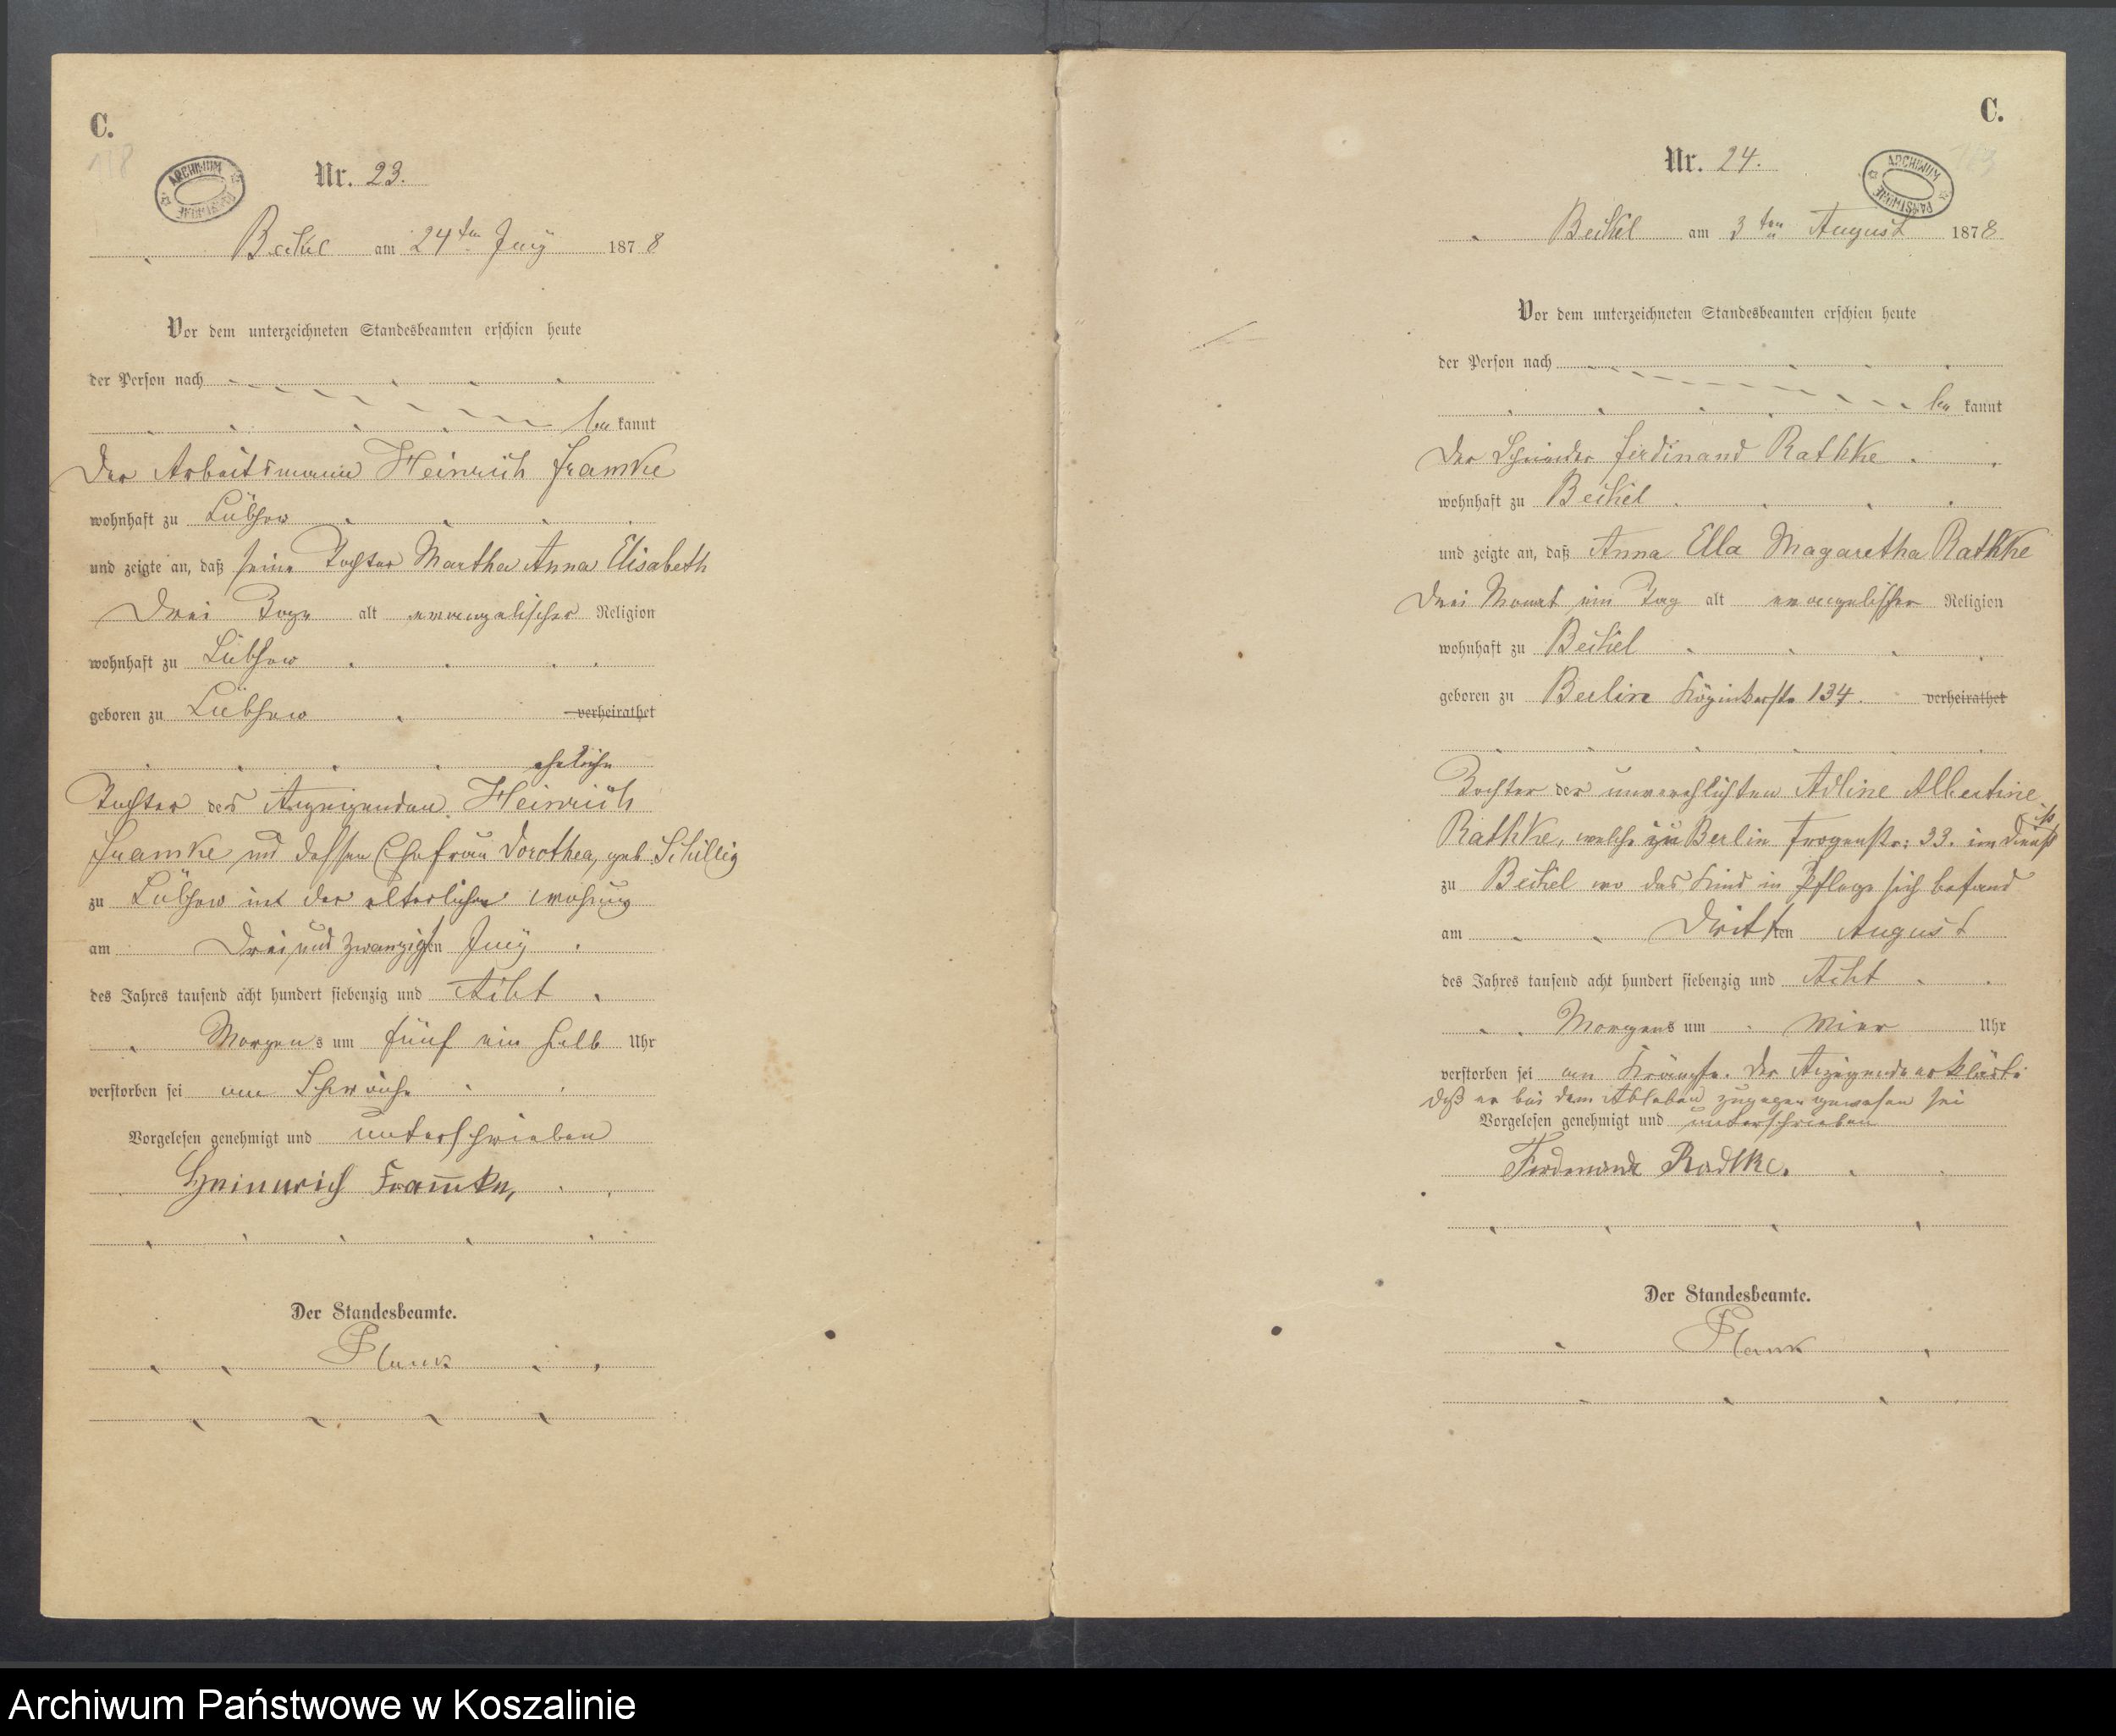 C.
ARCHIWUM PAŃSTWOWE
Nr. 23.
Beckel am 24ten July 1878
Vor dem unterzeichneten Standesbeamten erschien heute
der Person nach
be kannt
Der Arbeitsmann Heinrich Framke
wohnhaft zu Lübsow
und zeigte an, daß seine Tochter Martha Anna Elisabeth
Drei Tage alt evangelischer Religion
wohnhaft zu Lübsow
geboren zu Lübsow verheirathet
eheliche
Tochter des Anzeigenden Heinrich
Framke und dessen Ehefrau Dorothea, geb. Schillig
zu Lübsow in der elterlichen Wohung
am Drei und zwanzigsten July
des Jahres tausend acht hundert siebenzig und Acht
Morgens um fünf ein halb Uhr
verstorben sei an Schwäche
Vorgelesen genehmigt und unterschrieben
Heinrich Framke,
Der Standesbeamte.
C.
ARCHIWUM PAŃSTWOWE
Nr. 24.
Beckel am 3ten August 1878
Vor dem unterzeichneten Standesbeamten erschien heute
der Person nach
be kannt
Der Ferdinand Rathke
wohnhaft zu Beckel
und zeigte an, daß Anna Ella Magaretha Rathke
Drei Monat ein Tag alt evangelischer Religion
wohnhaft zu Beckel
geboren zu Berlin 134. verheirathet
Tochter der unverehlichten Adline Albertine
Rathke, welche zu Berlin 33. im Dienst ist
zu Beckel wo das Kind in Pflege sich befand
am Dritten August
des Jahres tausend acht hundert siebenzig und Acht
Morgens um Vier Uhr
verstorben sei an Krämpfe. Der Anzeigende erklärte
daß er bei dem Ableben zugegen gewesen sei
Vorgelesen genehmigt und unterschrieben
Ferdinand Radtke.
Der Standesbeamte.
Archiwum Państwowe w Koszalinie